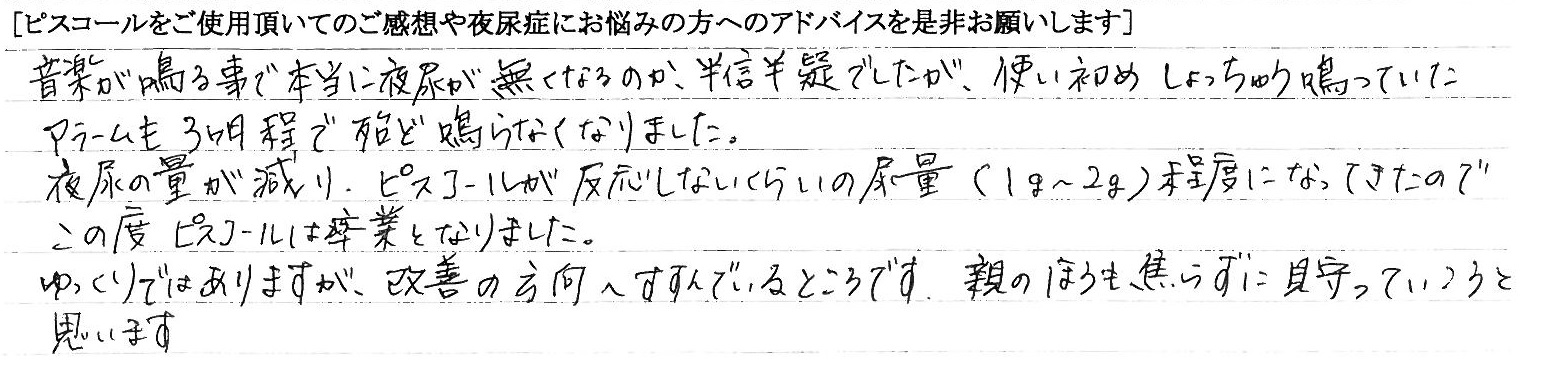 [ピスコールをご使用頂いてのご感想や夜尿症にお悩みの方へのアドバイスを是非お願いします]
音楽が鳴る事で本当に夜尿が無くなるのか、半信半疑でしたが、使い初めしょっちゅう鳴っていた
アラームも3ヶ月程で殆ど鳴らなくなりました。
夜尿の量が減り、ピスコールが反応しないくらいの尿量（1g～2g）程度になってきたので
この度ピスコールは卒業となりました。
ゆっくりではありますが、改善の方向へすすんでいるところです。親のほうも、焦らずに見守っていこうと
思います